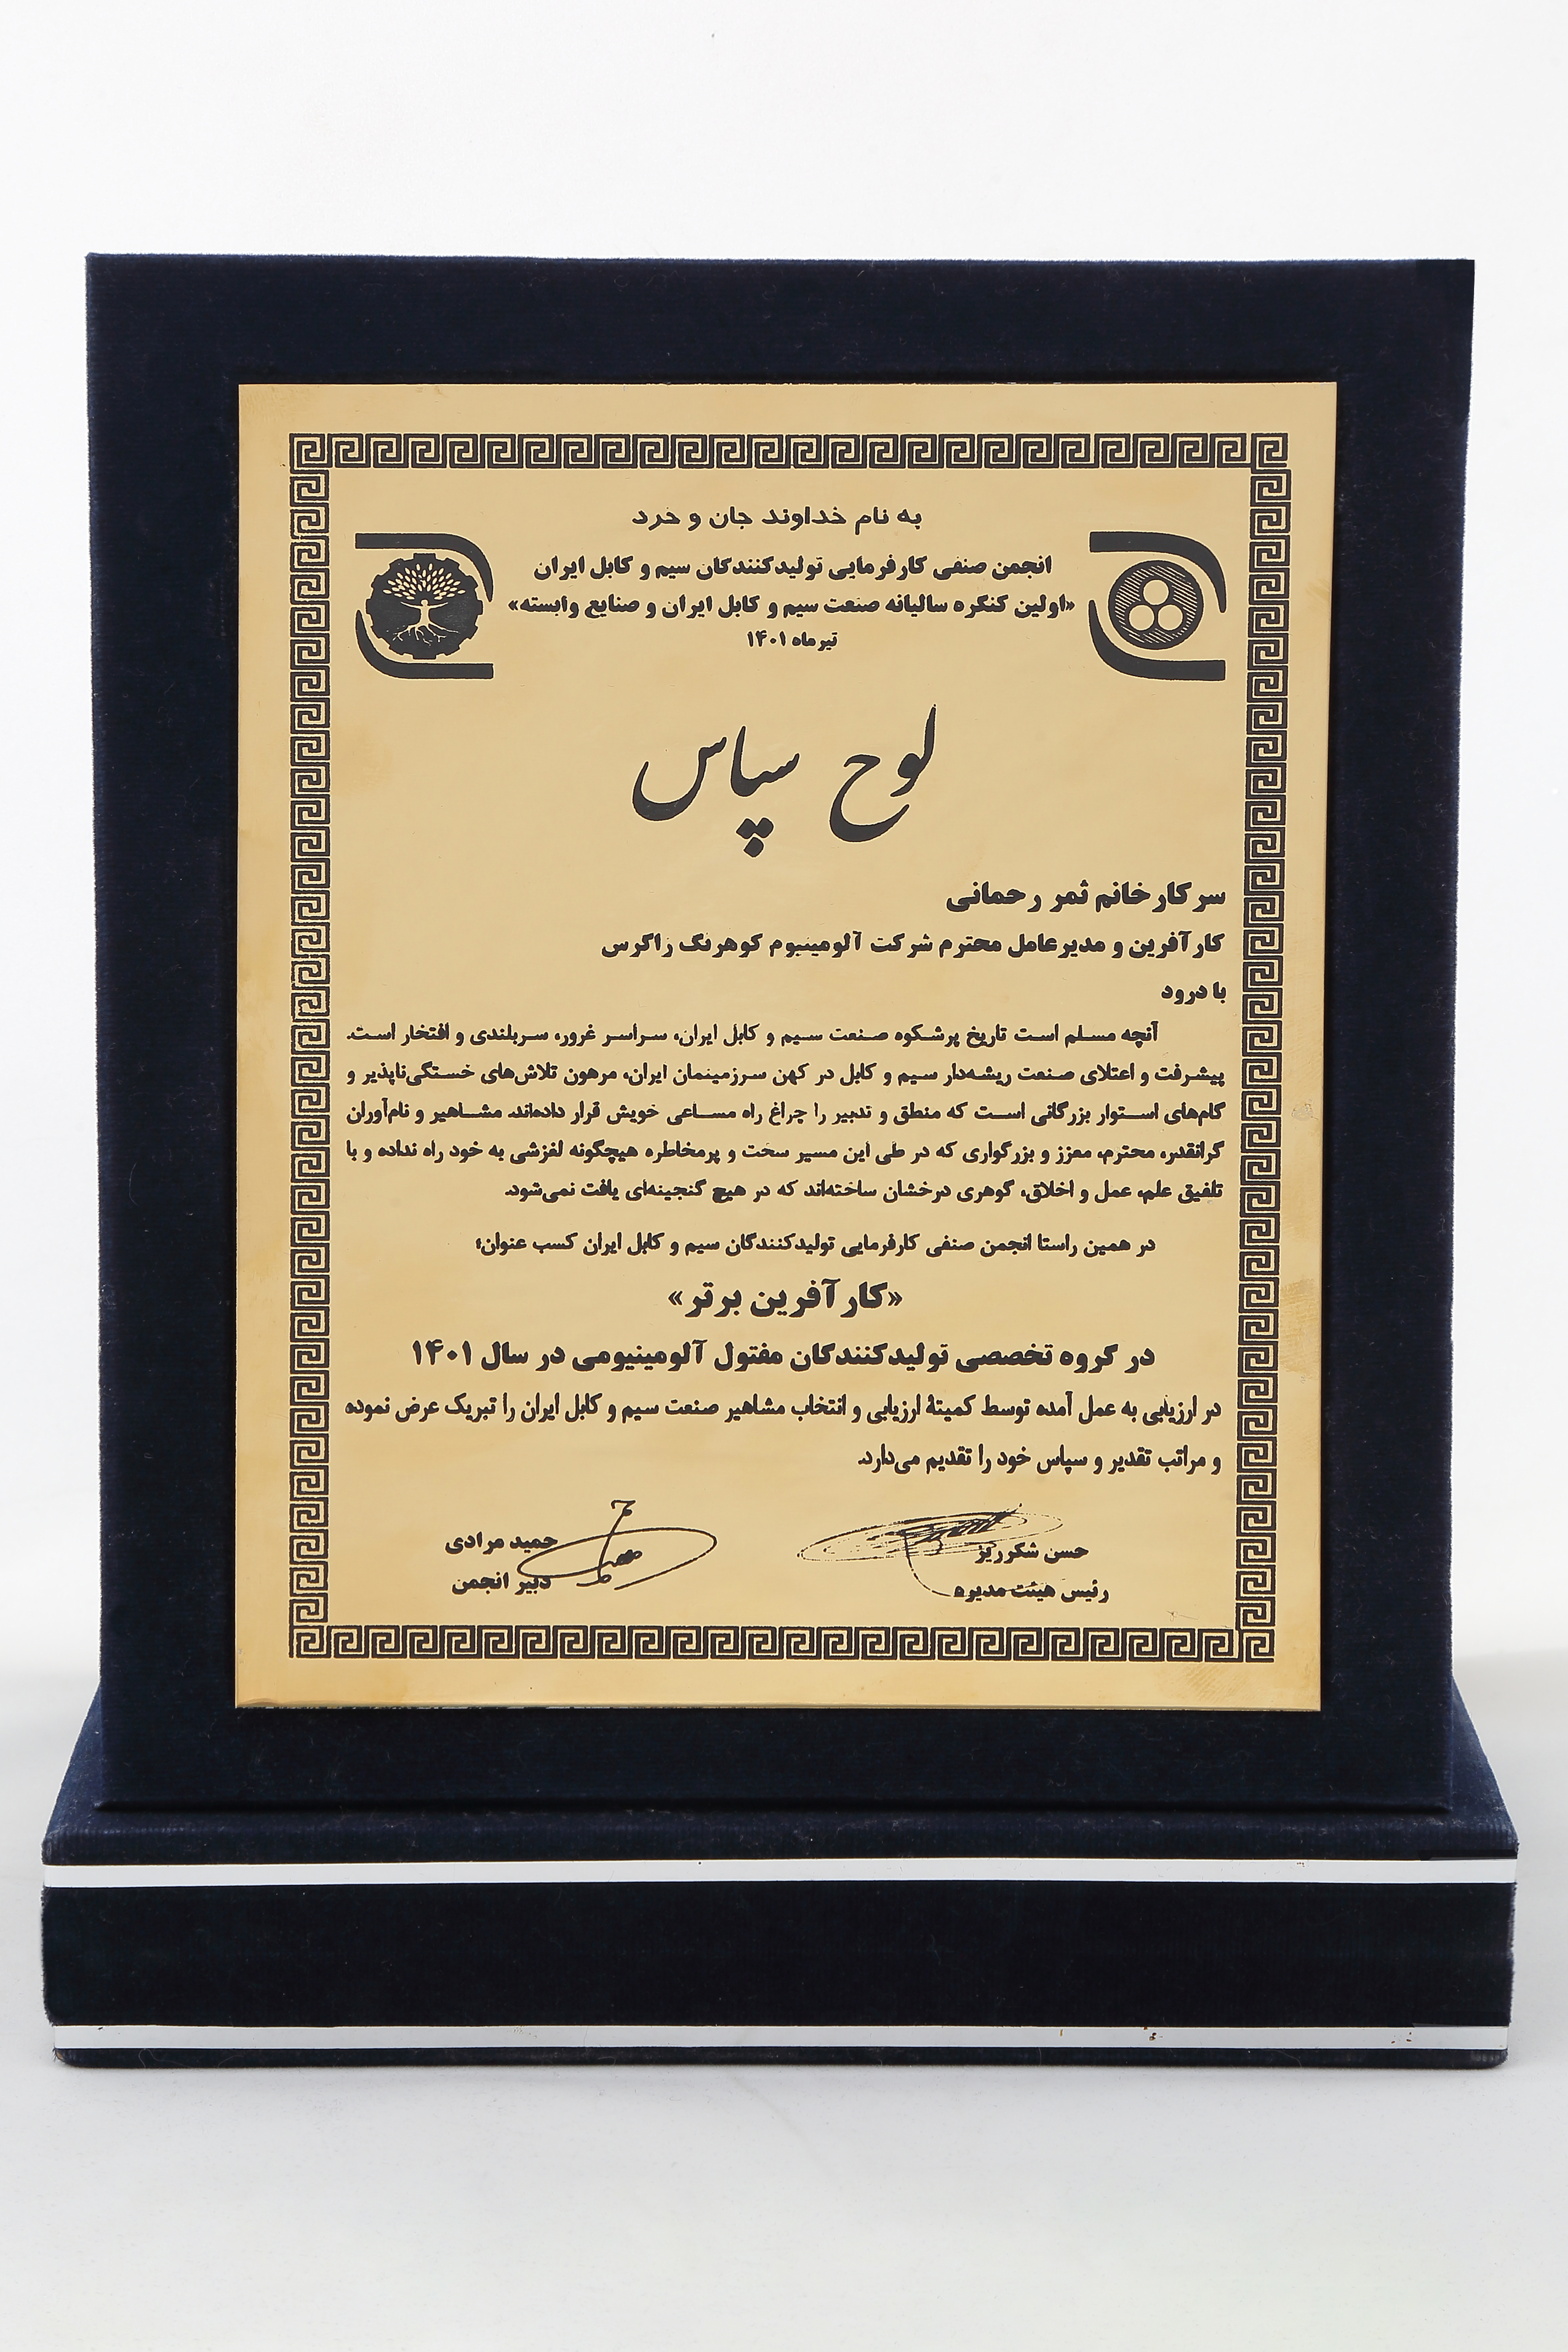 به نام خداوند جان و خرد
انجمن صنفی کارفرمایی تولیدکنندگان سیم و کابل ایران
«اولین کنگره سالیانه صنعت سیم و کابل ایران و صنایع وابسته»
تیر ماه ۱۴۰۱
لوح سپاس
سرکار خانم ثمر رحمانی
کارآفرین و مدیرعامل محترم شرکت آلومینیوم کوهرنگ زاگرس
با درود
آنچه مسلم است تاریخ پرشکوه صنعت سیم و کابل ایران، سراسر غرور، سربلندی و افتخار است.
پیشرفت و اعتلای صنعت ریشه‌دار سیم و کابل در کهن سرزمینمان ایران، مرهون تلاش‌های خستگی‌ناپذیر و
گام‌های استوار بزرگانی است که منطق و تدبیر را چراغ راه مساعی خویش قرار داده‌اند. مشاهیر و نام‌آوران
گرانقدر، محترم، معزز و بزرگواری که در طی این مسیر سخت و پرمخاطره هیچگونه لغزشی به خود راه نداده و با
تلفیق علم، عمل و اخلاق، گوهری درخشان ساخته‌اند که در هیچ گنجینه‌ای یافت نمی‌شود.
در همین راستا انجمن صنفی کارفرمایی تولیدکنندگان سیم و کابل ایران کسب عنوان؛
«کارآفرین برتر»
در گروه تخصصی تولیدکنندگان مفتول آلومینیومی در سال ۱۴۰۱
در ارزیابی به عمل آمده توسط کمیتهٔ ارزیابی و انتخاب مشاهیر صنعت سیم و کابل ایران را تبریک عرض نموده
و مراتب تقدیر و سپاس خود را تقدیم می‌دارد.
حسن شکرریز حمید مرادی
رئیس هیئت مدیره دبیر انجمن